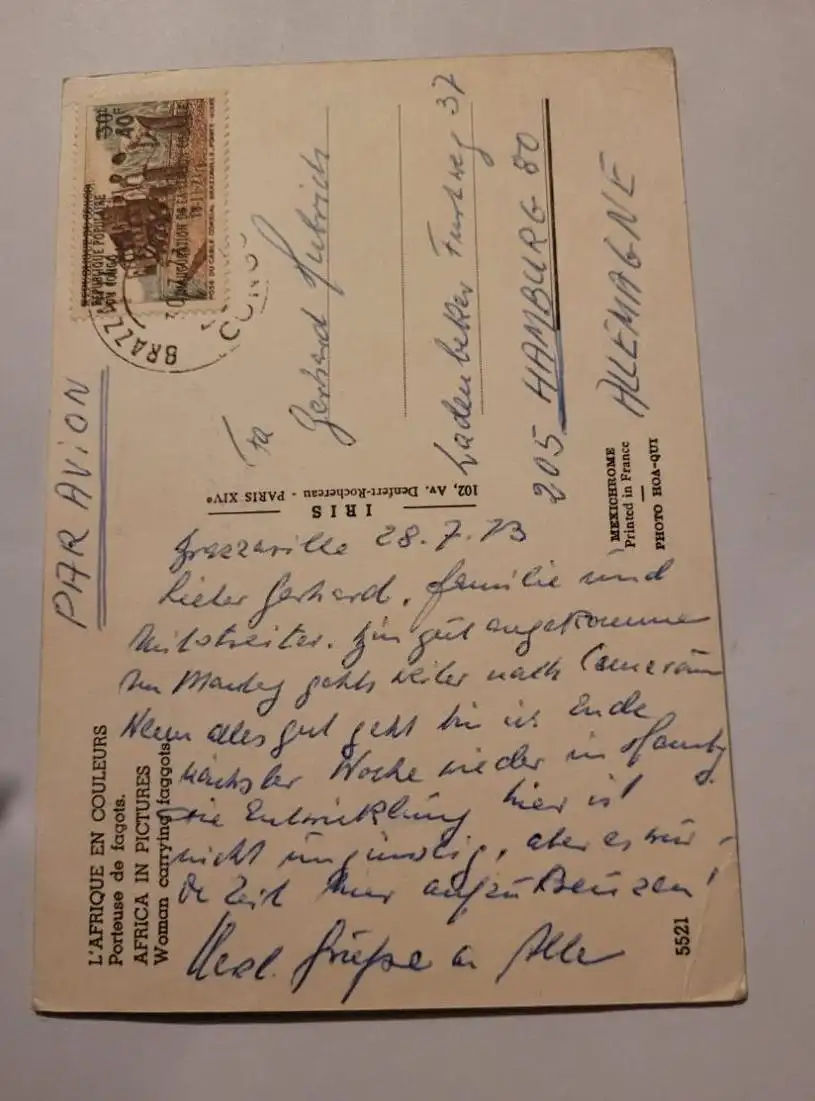 PAR AVION
30F
40F
REPUBLIQUE POPULAIRE
DU CONGO
INAUGURATION DE LA
18-11
POSE DU CABLE COAXIAL BRAZZAVILLE POINTE-NOIRE
BRAZZ
CONGO
Fa
Gerhard
Ladenbeker Furtweg 37
205 HAMBURG 80
ALLEMAGNE
IRIS
102, Av. Denfert-Rochereau - PARIS XIVe
MEXICHROME
Printed in France
PHOTO HOA-QUI
Brazzaville 28.7.73
Lieber Gerhard, Familie und
Mitstreiter. Bin gut angekommen
Am Montag gehts weiter nach Camerun
Wenn alles gut geht bin ich Ende
nächster Woche wieder in Hamburg
Die Entwicklung hier ist
nicht ungünstig, aber es
Zeit hier aufzukreuzen!
Herzl. Grüße an Alle
L'AFRIQUE EN COULEURS
Porteuse de fagots.
AFRICA IN PICTURES
Woman carrying faggots
5521